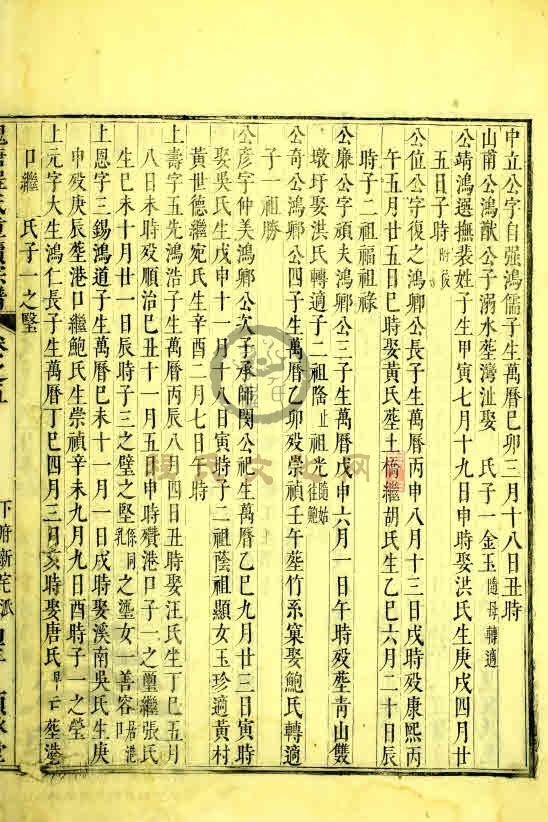 中立公字自强鴻儒子生萬曆己卯三月十八日丑時
山甫公鴻猷公子溺水塟灣沚娶　氏子一金玉隨母轉適
公靖鴻選撫裴姓子生甲寅七月十九日申時娶洪氏生庚戌四月廿
五日子時
公位公字復之鴻卿公長子生萬曆丙申八月十三日戌時歿康熙丙
午五月廿五日巳時娶黃氏塟土橋繼胡氏生乙巳六月二十日辰
時子二祖福祖祿
公廉公字頑夫鴻卿公三子生萬曆戊申六月一日午時歿塟青山雙
墩圩娶洪氏轉適子二祖隆止祖光隨姑往鮑
公奇公鴻卿公四子生萬曆乙卯歿崇禎壬午塟竹系窠娶鮑氏轉適
子一祖勝
公彥字仲美鴻卿公次子承師閔公祀生萬曆乙巳九月廿三日寅時
娶吳氏生戊申十一月十八日寅時子二祖蔭祖顯女玉珍適黃村
黃世德繼宛氏生辛酉二月七日午時
上壽字五光鴻浩子生萬曆丙辰八月四日丑時娶汪氏生丁巳五月
八日未時歿順治己丑十一月五日申時殯港口子一之璽繼張氏
生己未十月廿一日辰時子三之璧之堅乳名條同之瑬女一善容居港口
上恩字三錫鴻道子生萬曆己未十一月一日戌時娶溪南吳氏生庚
申歿庚辰塟港口繼鮑氏生崇禎辛未九月九日酉時子一之瑩
上元字大生鴻仁長子生萬曆丁巳四月三日亥時娶唐氏早亡塟港
口繼　氏子一之堅
卷之五　下府新宅派